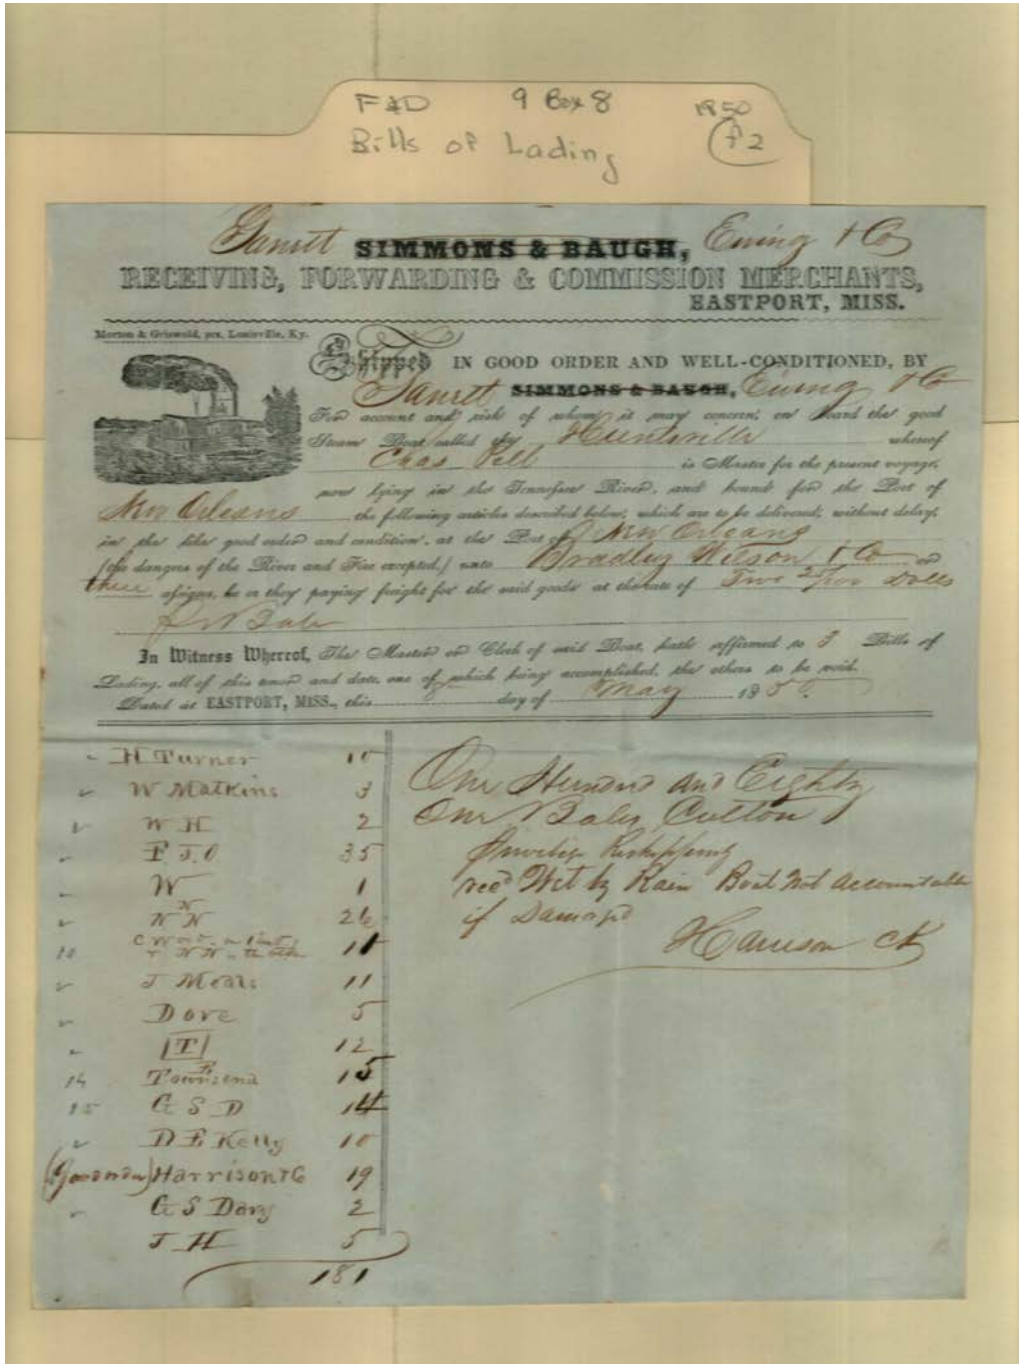 F&D 9 Box 8 1850
Bills of Lading f2
Garrett SIMMONS & BAUGH, Ewing & Co
RECEIVING, FORWARDING & COMMISSION MERCHANTS,
EASTPORT, MISS.
Morton & Griswold, prs, Louisville, Ky.
Shipped IN GOOD ORDER AND WELL-CONDITIONED, BY
Garrett SIMMONS & BAUGH, Ewing & Co
For account and risk of whom it may concern, on board the good
Steam Boat called the Huntsville whereof
Chas Pell is Master for the present voyage,
now lying in the Tennessee River, and bound for the Port of
New Orleans the following articles described below, which are to be delivered, without delay,
in the like good order and condition, at the Port of New Orleans
(the dangers of the River and Fire excepted,) unto Bradley Wilson & Co or
their assigns, he or they paying freight for the said goods at the rate of Two Dolls
Bale
In Witness Whereof, The Master or Clerk of said Boat, hath affirmed to 3 Bills of
Lading, all of this tenor and date, one of which being accomplished, the others to be void.
Dated at EASTPORT, MISS., this day of May 1850
H Turner 10
W Matkins 3
W H 2
F J O 35
W 1
N
N N 26
10 11
J Meals 11
Dove 5
[T] 12
14 Townsend 15
15 G S D 14
D F Kelly 10
Harrison & Co 19
G S Davy 2
J H 5
181
One Hundred and Eighty
One Bales Cotton
Privilege Reshipping
recd Wet by Rain Boat Not Accountable
if Damaged
Harrison Ck